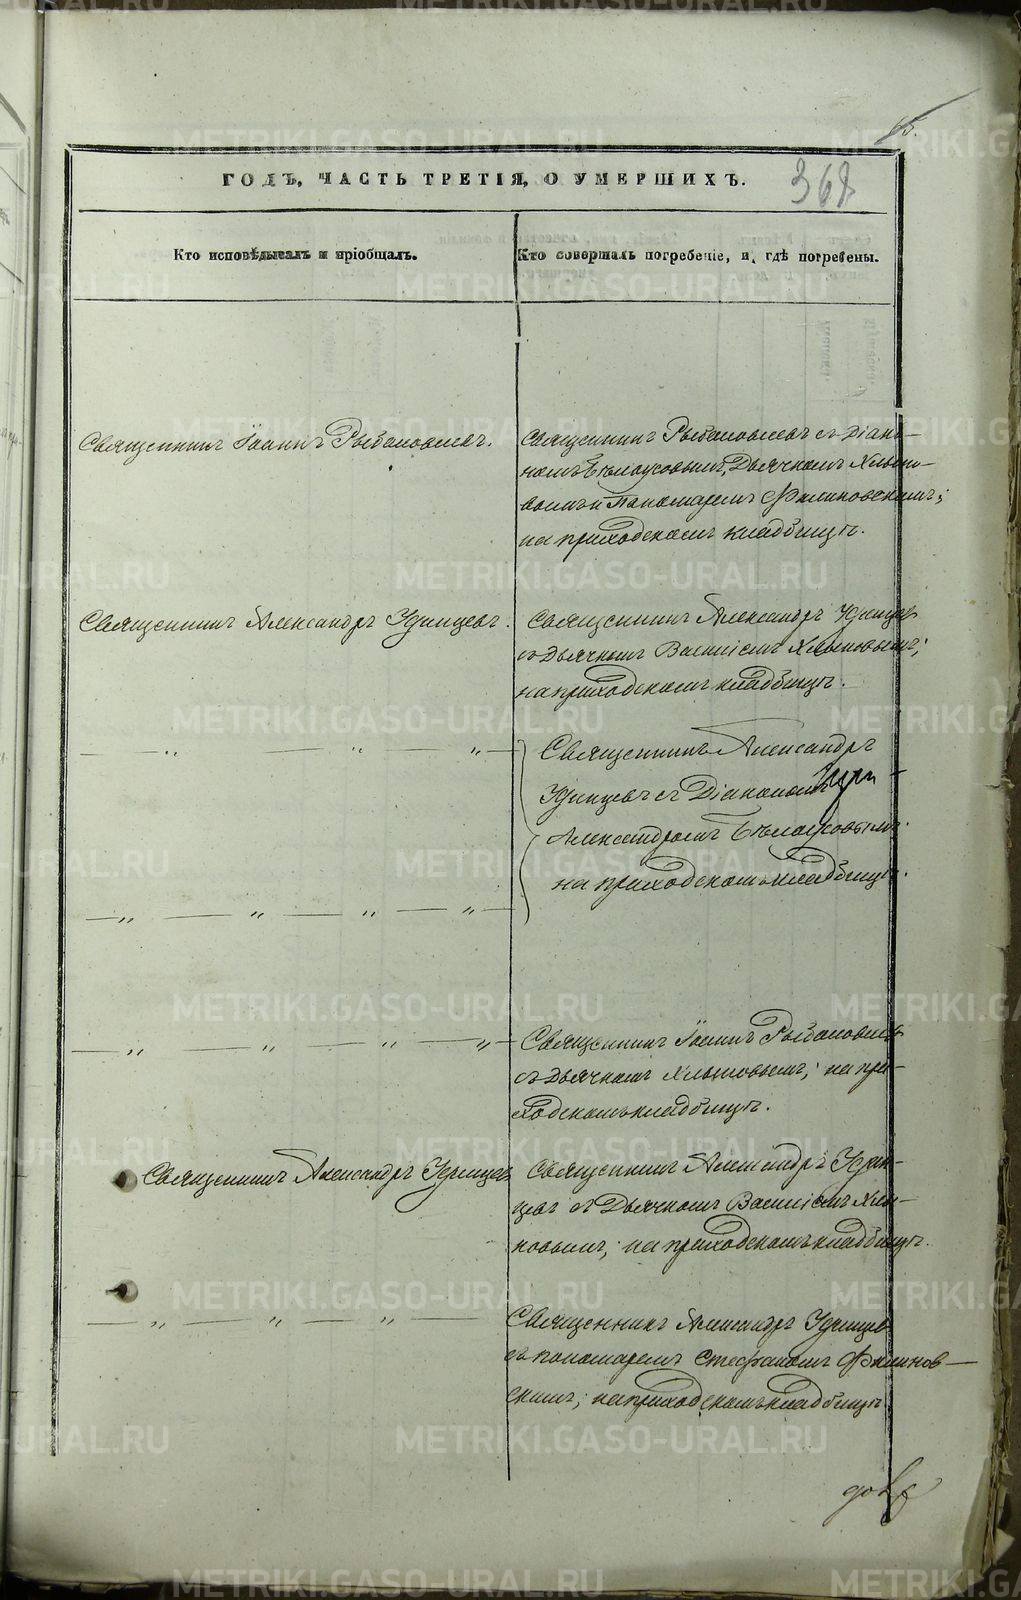 65.
368
ГОДЪ, ЧАСТЬ ТРЕТІЯ, О УМЕРШИХЪ.
Кто исповѣдывалъ и пріобщалъ.
Кто совершалъ погребеніе, и гдѣ погребены.
Священникъ Іоаннъ Рыболовлевъ.
Священникъ Рыболовлевъ съ Діако-
номъ Бѣлоусовымъ, Дьячкомъ Хлыно-
вымъ и Пономаремъ Филиновскимъ;
на приходскомъ кладбищѣ.
Священникъ Александръ Удинцевъ.
Священникъ Александръ Удинцевъ
съ Дьячкомъ Василіемъ Хлыновымъ;
на приходскомъ кладбищѣ.
— „ — „ — „ —
Священникъ Александръ
Удинцевъ съ Діакономъ
Александромъ Бѣлоусовымъ
на приходскомъ кладбищѣ.
— „ — „ — „ — „ —
— „ — „ — „ — „ —
Священникъ Іоаннъ Рыболовлевъ
съ Дьячкомъ Хлыновымъ; на при-
ходскомъ кладбищѣ.
Священникъ Александръ Удинцевъ
Священникъ Александръ Удин-
цевъ съ Дьячкомъ Василіемъ Хлы-
новымъ; на приходскомъ кладбищѣ.
— „ — „ — „ —
Священникъ Александръ Удинцевъ
съ пономаремъ Стефаномъ Филинов-
скимъ; на приходскомъ кладбищѣ.
METRIKI.GASO-URAL.RU